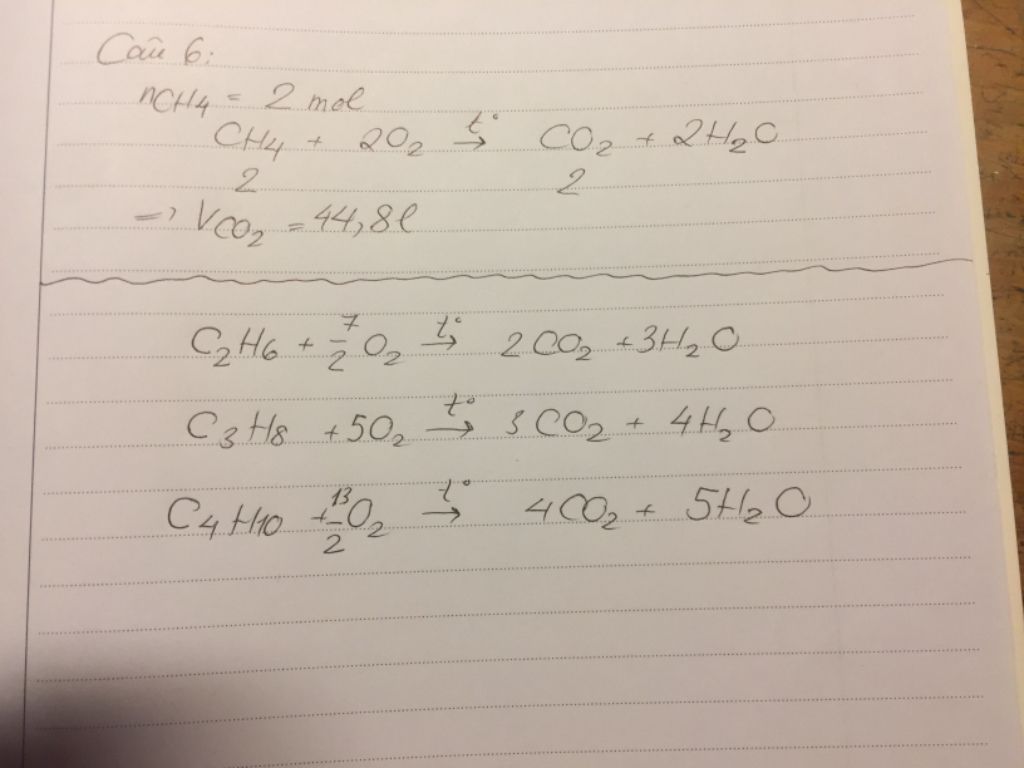 Câu 6:
nCH4 = 2 mol
CH4 + 2O2 t°→ CO2 + 2H2O
2 2
=> VCO2 = 44,8l
C2H6 + 7/2 O2 t°→ 2CO2 + 3H2O
C3H8 + 5O2 t°→ 3CO2 + 4H2O
C4H10 + 13/2 O2 t°→ 4CO2 + 5H2O